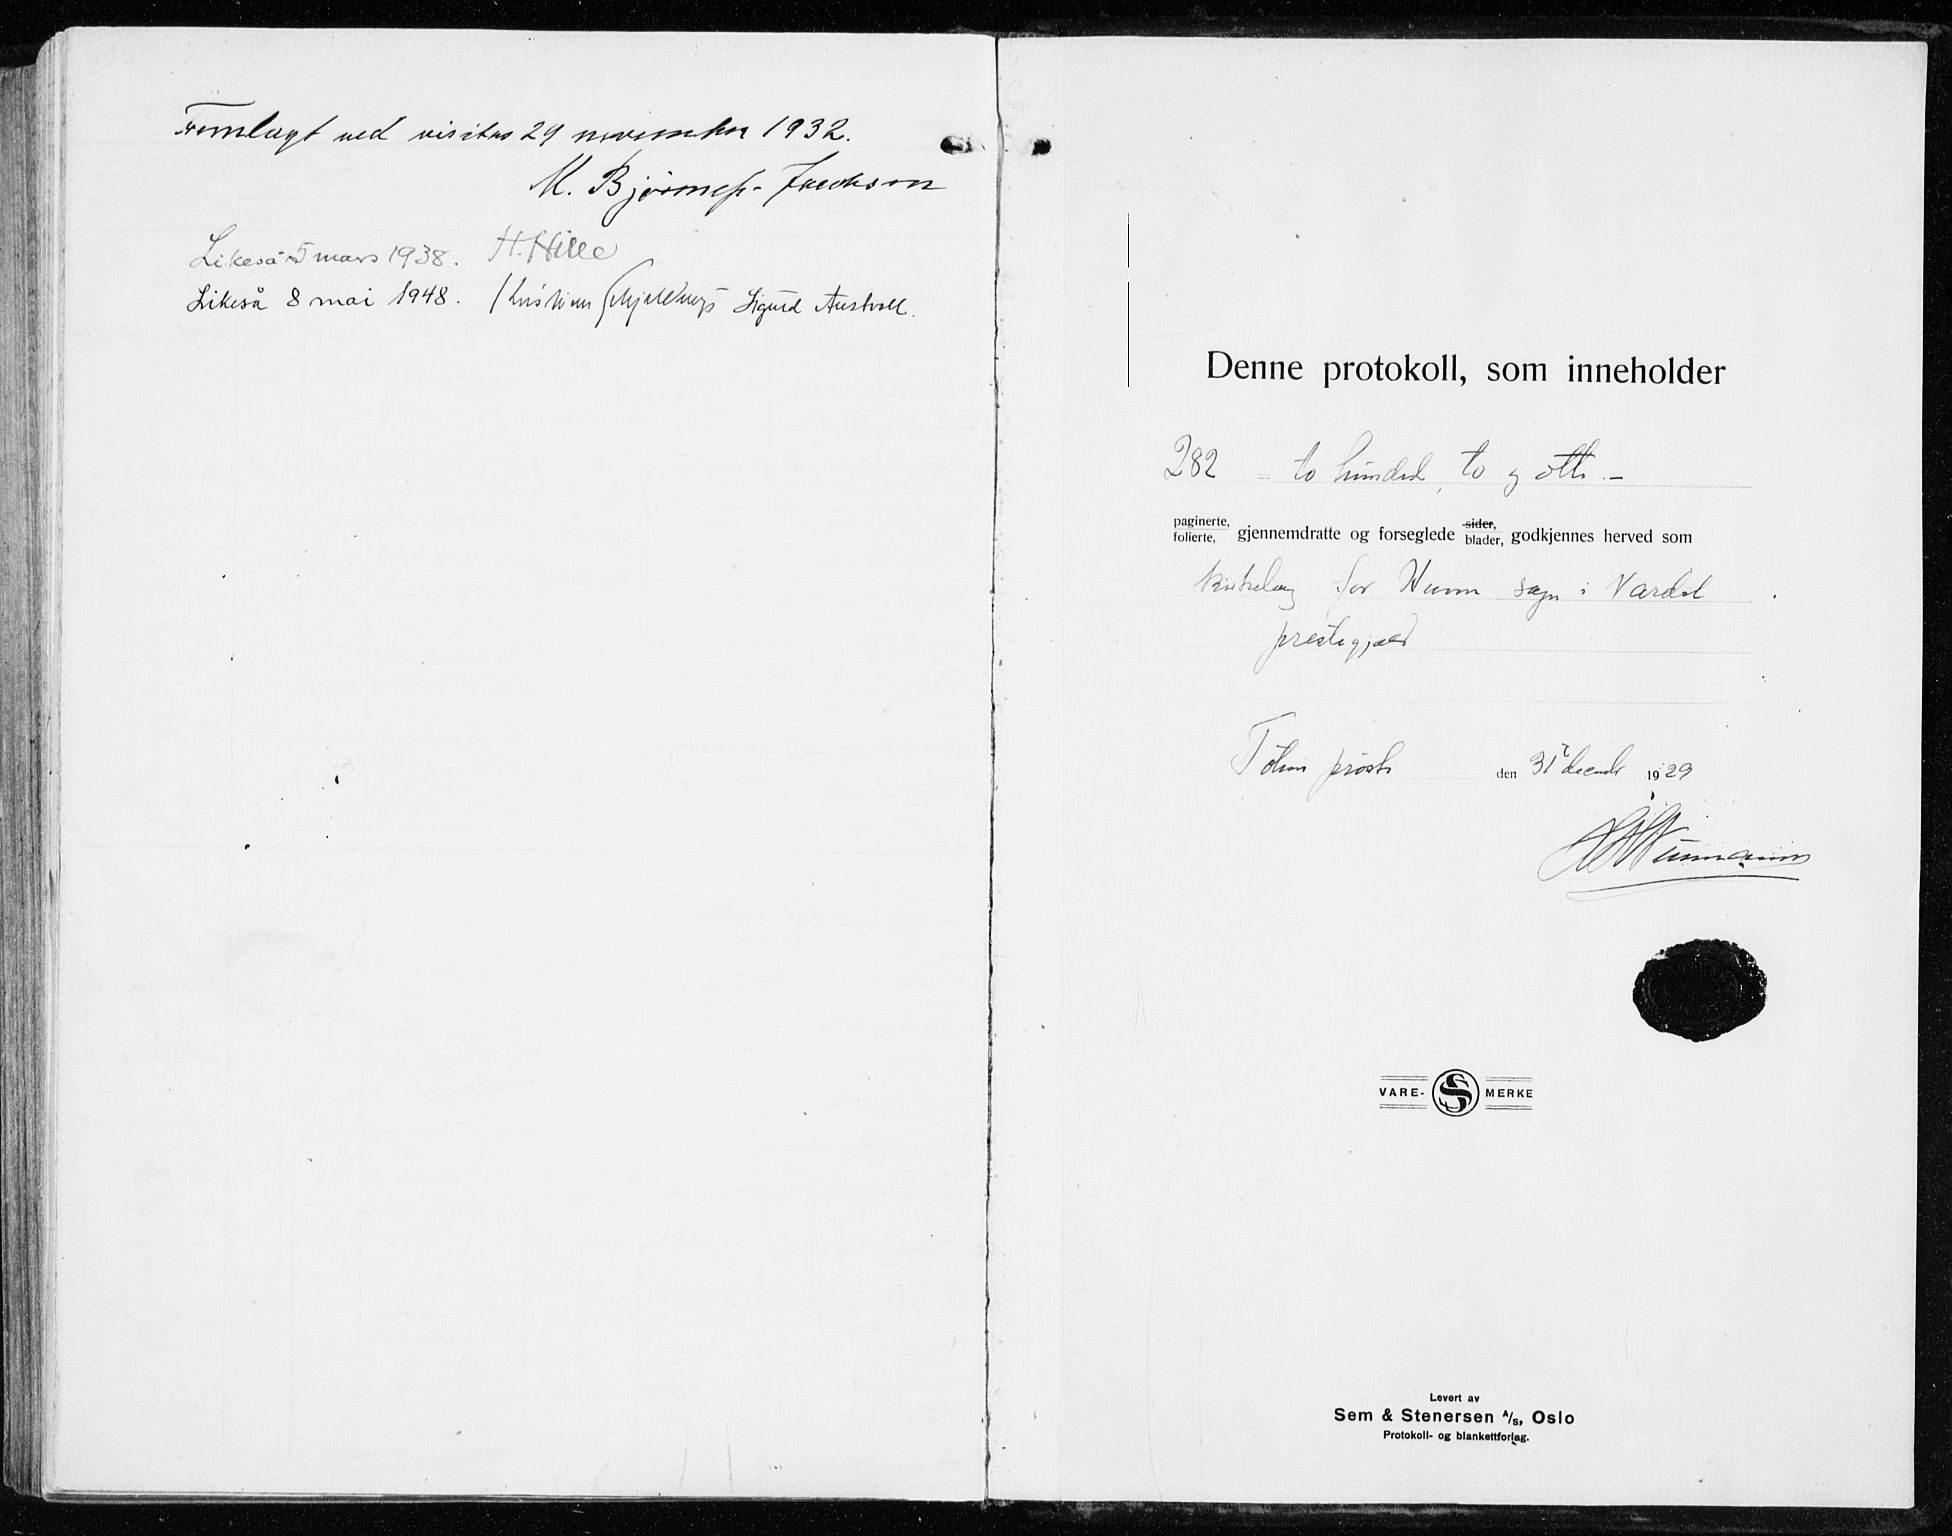 Fremlagt ved visitas 29 november 1932.
M. Bjørnness-Jacobsen
Likeså 5 mars 1938. H. Hille
Likeså 8 mai 1948. Kristian Schjelderup Sigurd Austvoll.
Denne protokoll, som inneholder
282 = to hundred, to og otti. -
paginerte,
folierte, gjennemdratte og forseglede sider, blader, godkjennes herved som
kirkebog for Hunn sogn i Vardal
prestegjæld
Toten prosti den 31 decembr 1929
VARE- S MERKE
Levert av
Sem & Stenersen A/S, Oslo
Protokoll- og blankettforlag.